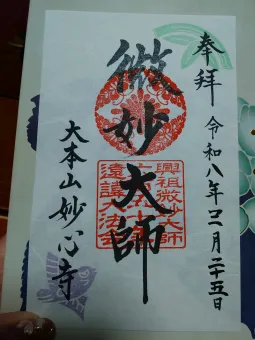 奉拝
令和八年二月二十五日
微妙大師
興祖微妙大師
六百五十年
遠諱大法会
大本山妙心寺